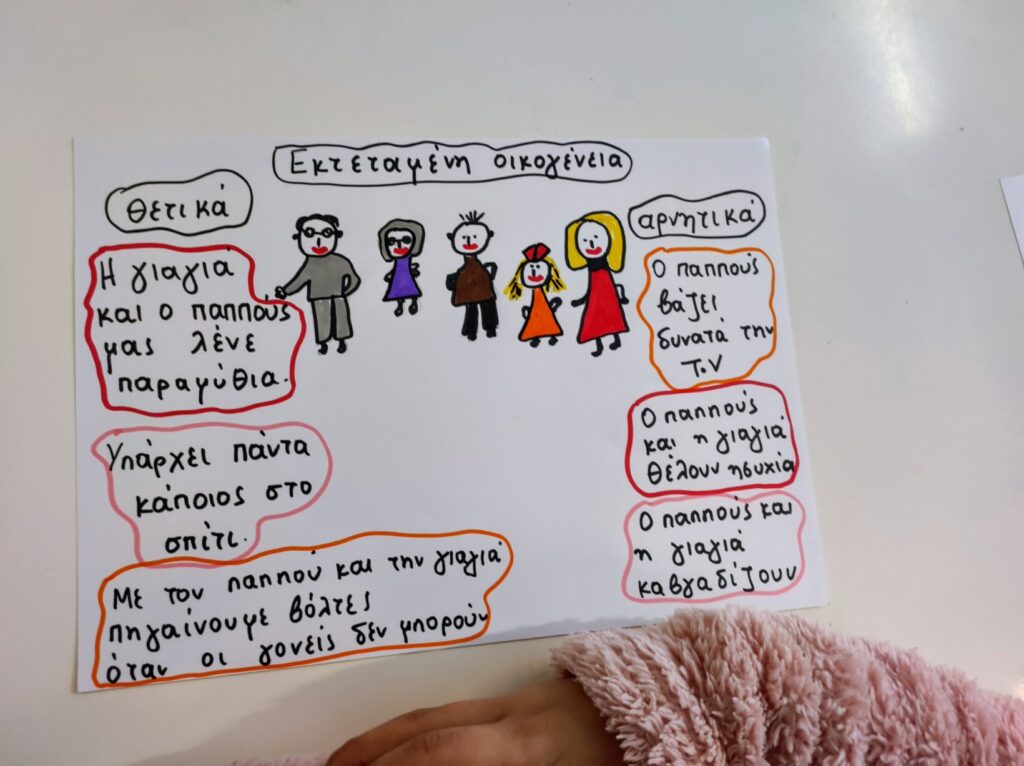 Εκτεταμένη οικογένεια
θετικά
Η γιαγιά
και ο παππούς
μας λένε
παραμύθια.
Υπάρχει πάντα
κάποιος στο
σπίτι.
Με τον παππού και την γιαγιά
πηγαίνουμε βόλτες
όταν οι γονείς δεν μπορούν
αρνητικά
Ο παππούς
βάζει
δυνατά την
T.V
Ο παππούς
και η γιαγιά
θέλουν ησυχία
Ο παππούς και
η γιαγιά
καβγαδίζουν